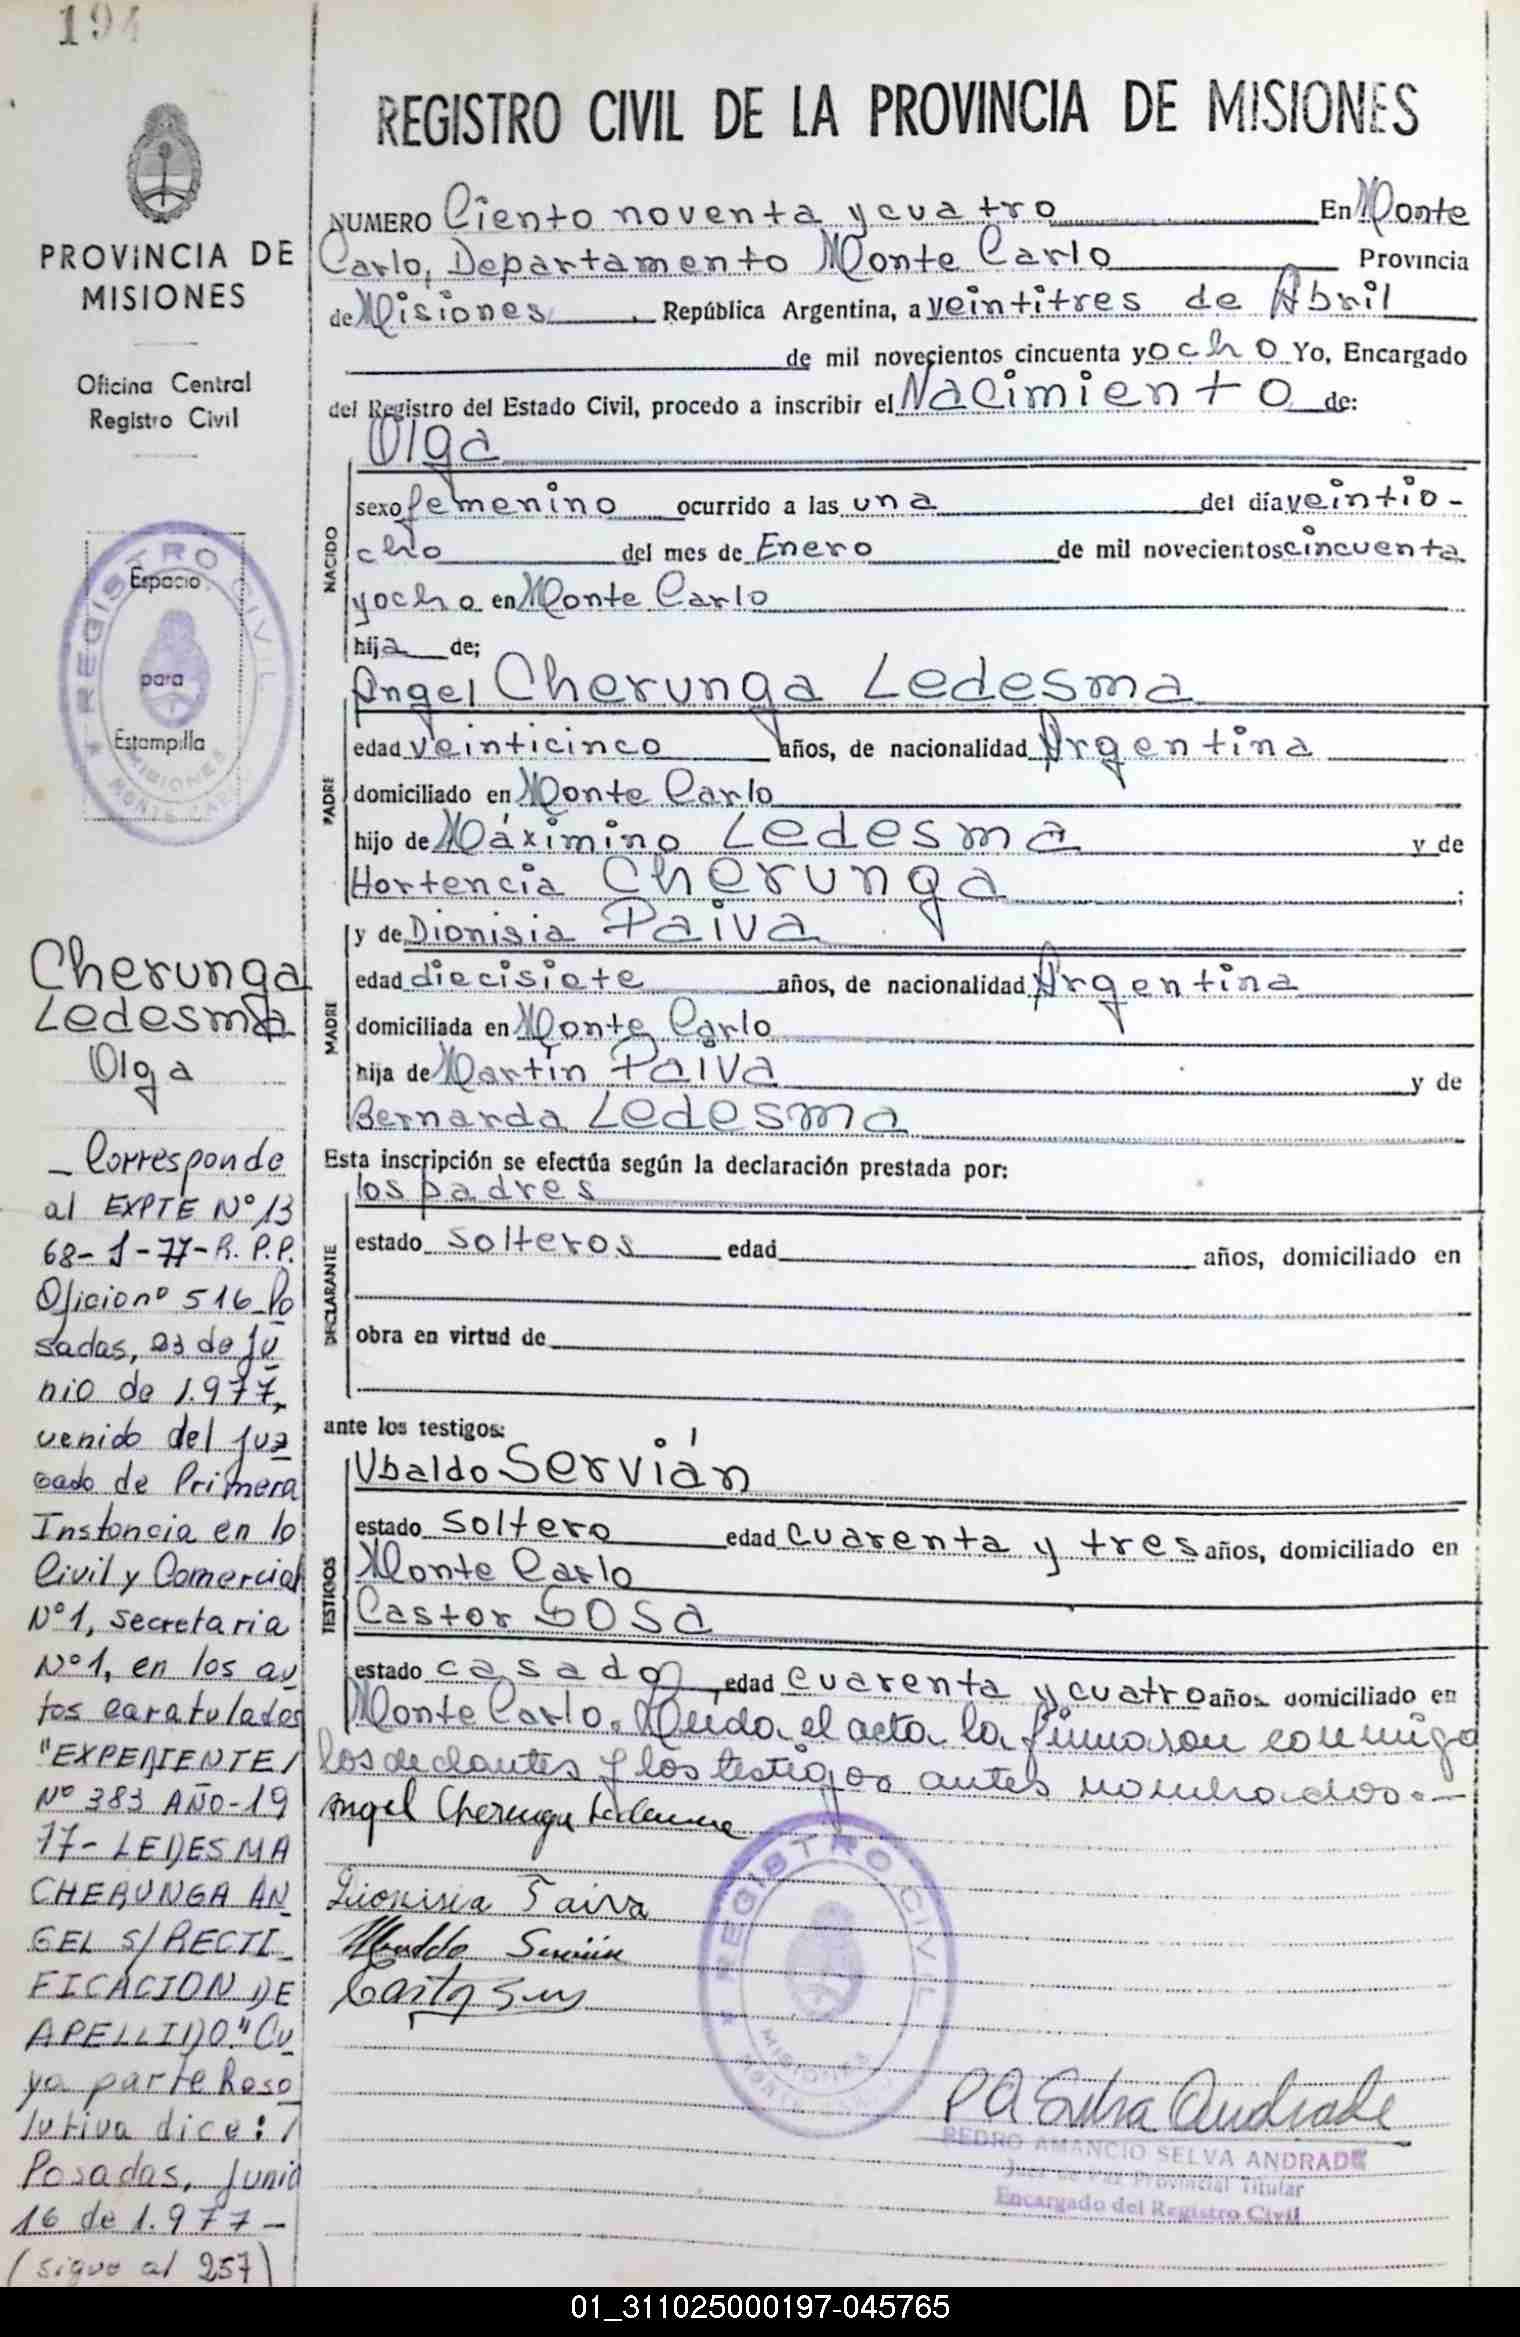 194
REGISTRO CIVIL DE LA PROVINCIA DE MISIONES
PROVINCIA DE
MISIONES
Oficina Central
Registro Civil
REGISTRO CIVIL
Espacio
para
Estampilla
MISIONES
Cherunga
Ledesma
Olga
_ Corresponde
al EXPTE Nº 13
68-J-77-R.P.P.
Oficio nº 516_Po
sadas, 23 de Ju
nio de 1.977,
venido del Juz
gado de Primera
Instancia en lo
Civil y Comercial
Nº1, secretaria
Nº1, en los au
tos caratulados
"EXPEDIENTE/
Nº 383 AÑO-19
77- LEDESMA
CHERUNGA AN_
GEL S/RECTI_
FICACION DE
APELLIDO." Cu
ya parte Reso
lutiva dice: /
Posadas, Junio
16 de 1.977-
(sigue al 257)
NUMERO Ciento noventa y cuatro En Monte
Carlo, Departamento Monte Carlo Provincia
de Misiones, República Argentina, a veintitres de Abril
de mil novecientos cincuenta y ocho Yo, Encargado
del Registro del Estado Civil, procedo a inscribir el Nacimiento de:
Olga
NACIDO
sexo femenino ocurrido a las una del día veintio-
cho del mes de Enero de mil novecientos cincuenta
y ocho en Monte Carlo
hija de;
Angel Cherunga Ledesma
PADRE
edad veinticinco años, de nacionalidad Argentina
domiciliado en Monte Carlo
hijo de Máximino Ledesma y de
Hortencia Cherunga ;
y de Dionisia Paiva
MADRE
edad diecisiete años, de nacionalidad Argentina
domiciliada en Monte Carlo
hija de Martín Paiva y de
Bernarda Ledesma
Esta inscripción se efectúa según la declaración prestada por:
los padres
DECLARANTE
estado solteros edad años, domiciliado en
obra en virtud de
ante los testigos:
Ubaldo Servián
TESTIGOS
estado soltero edad cuarenta y tres años, domiciliado en
Monte Carlo
Castor Sosa
estado casado, edad cuarenta y cuatro años domiciliado en
Monte Carlo. el acta la firmaron conmigo
los declantes y los testigos antes nombrados.-
Angel Cherunga Ledesma
Dionisia Paiva
Ubaldo Servián
REGISTRO CIVIL
MISIONES
P A Selva Andrade
PEDRO AMANCIO SELVA ANDRADE
Juez de Paz Provincial Titular
Encargado del Registro Civil
01_311025000197-045765